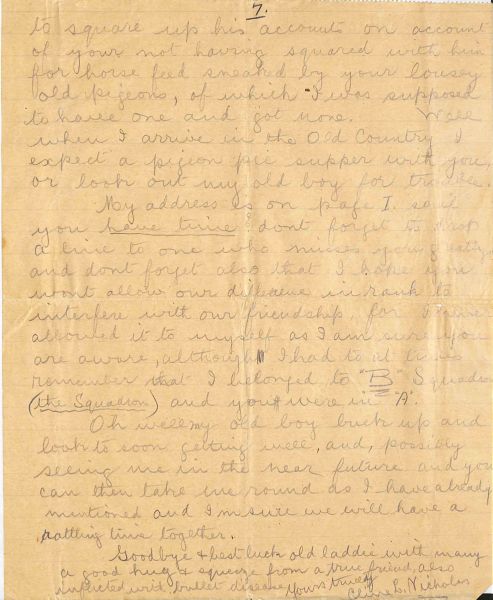 7.
to square up his accounts on account
of your not having squared with him
for horse feed sneaked by your lousey
old pigeons, of which I was supposed
to have one and got none. Well
when I arrive in the Old Country I
expect a pigeon pie supper with you,
or look out my old boy for trouble.
My address is on page I. so if
you have time dont forget to drop
a line to one who misses you greatly
and dont forget also that I hope you
wont allow our difference in rank to
interfere with our friendship, for I never
allowed it to myself as I am sure you
are aware, although I had to at times
remember that I belonged to "B" Squadron
(the Squadron) and you were in "A".
Oh well my old boy buck up and
look to soon getting well, and, possibly
seeing me in the near future and you
can then take me round as I have already
mentioned and I'm sure we will have a
rattling time together.
Goodbye & best luck old laddie with many
a good hug & squeeze from a true friend, also
inflicted with bullet disease, Yours truly
Clive L. Nicholas